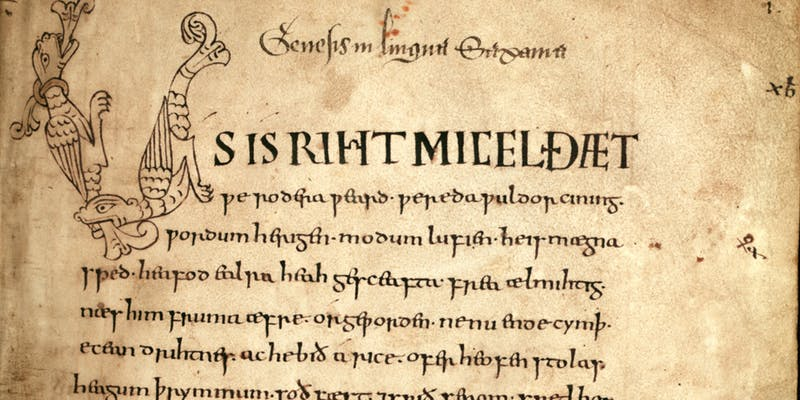 Genesis in lingua Saxania
US IS RIHT MICEL ÐÆT
ƿe rodera ƿeard· ƿereda ƿuldor cining·
ƿordum herigen· modum lufien· heis mægna
sped· heafod ealra heah gesceafta· frea ælmihtig·
næs him fruma æfre· or geƿorden· ne nu ende cymþ·
ecean drihtnes· ac he bið a rice· ofer heofen stolas·
heagum þrymmum· soð fæst·